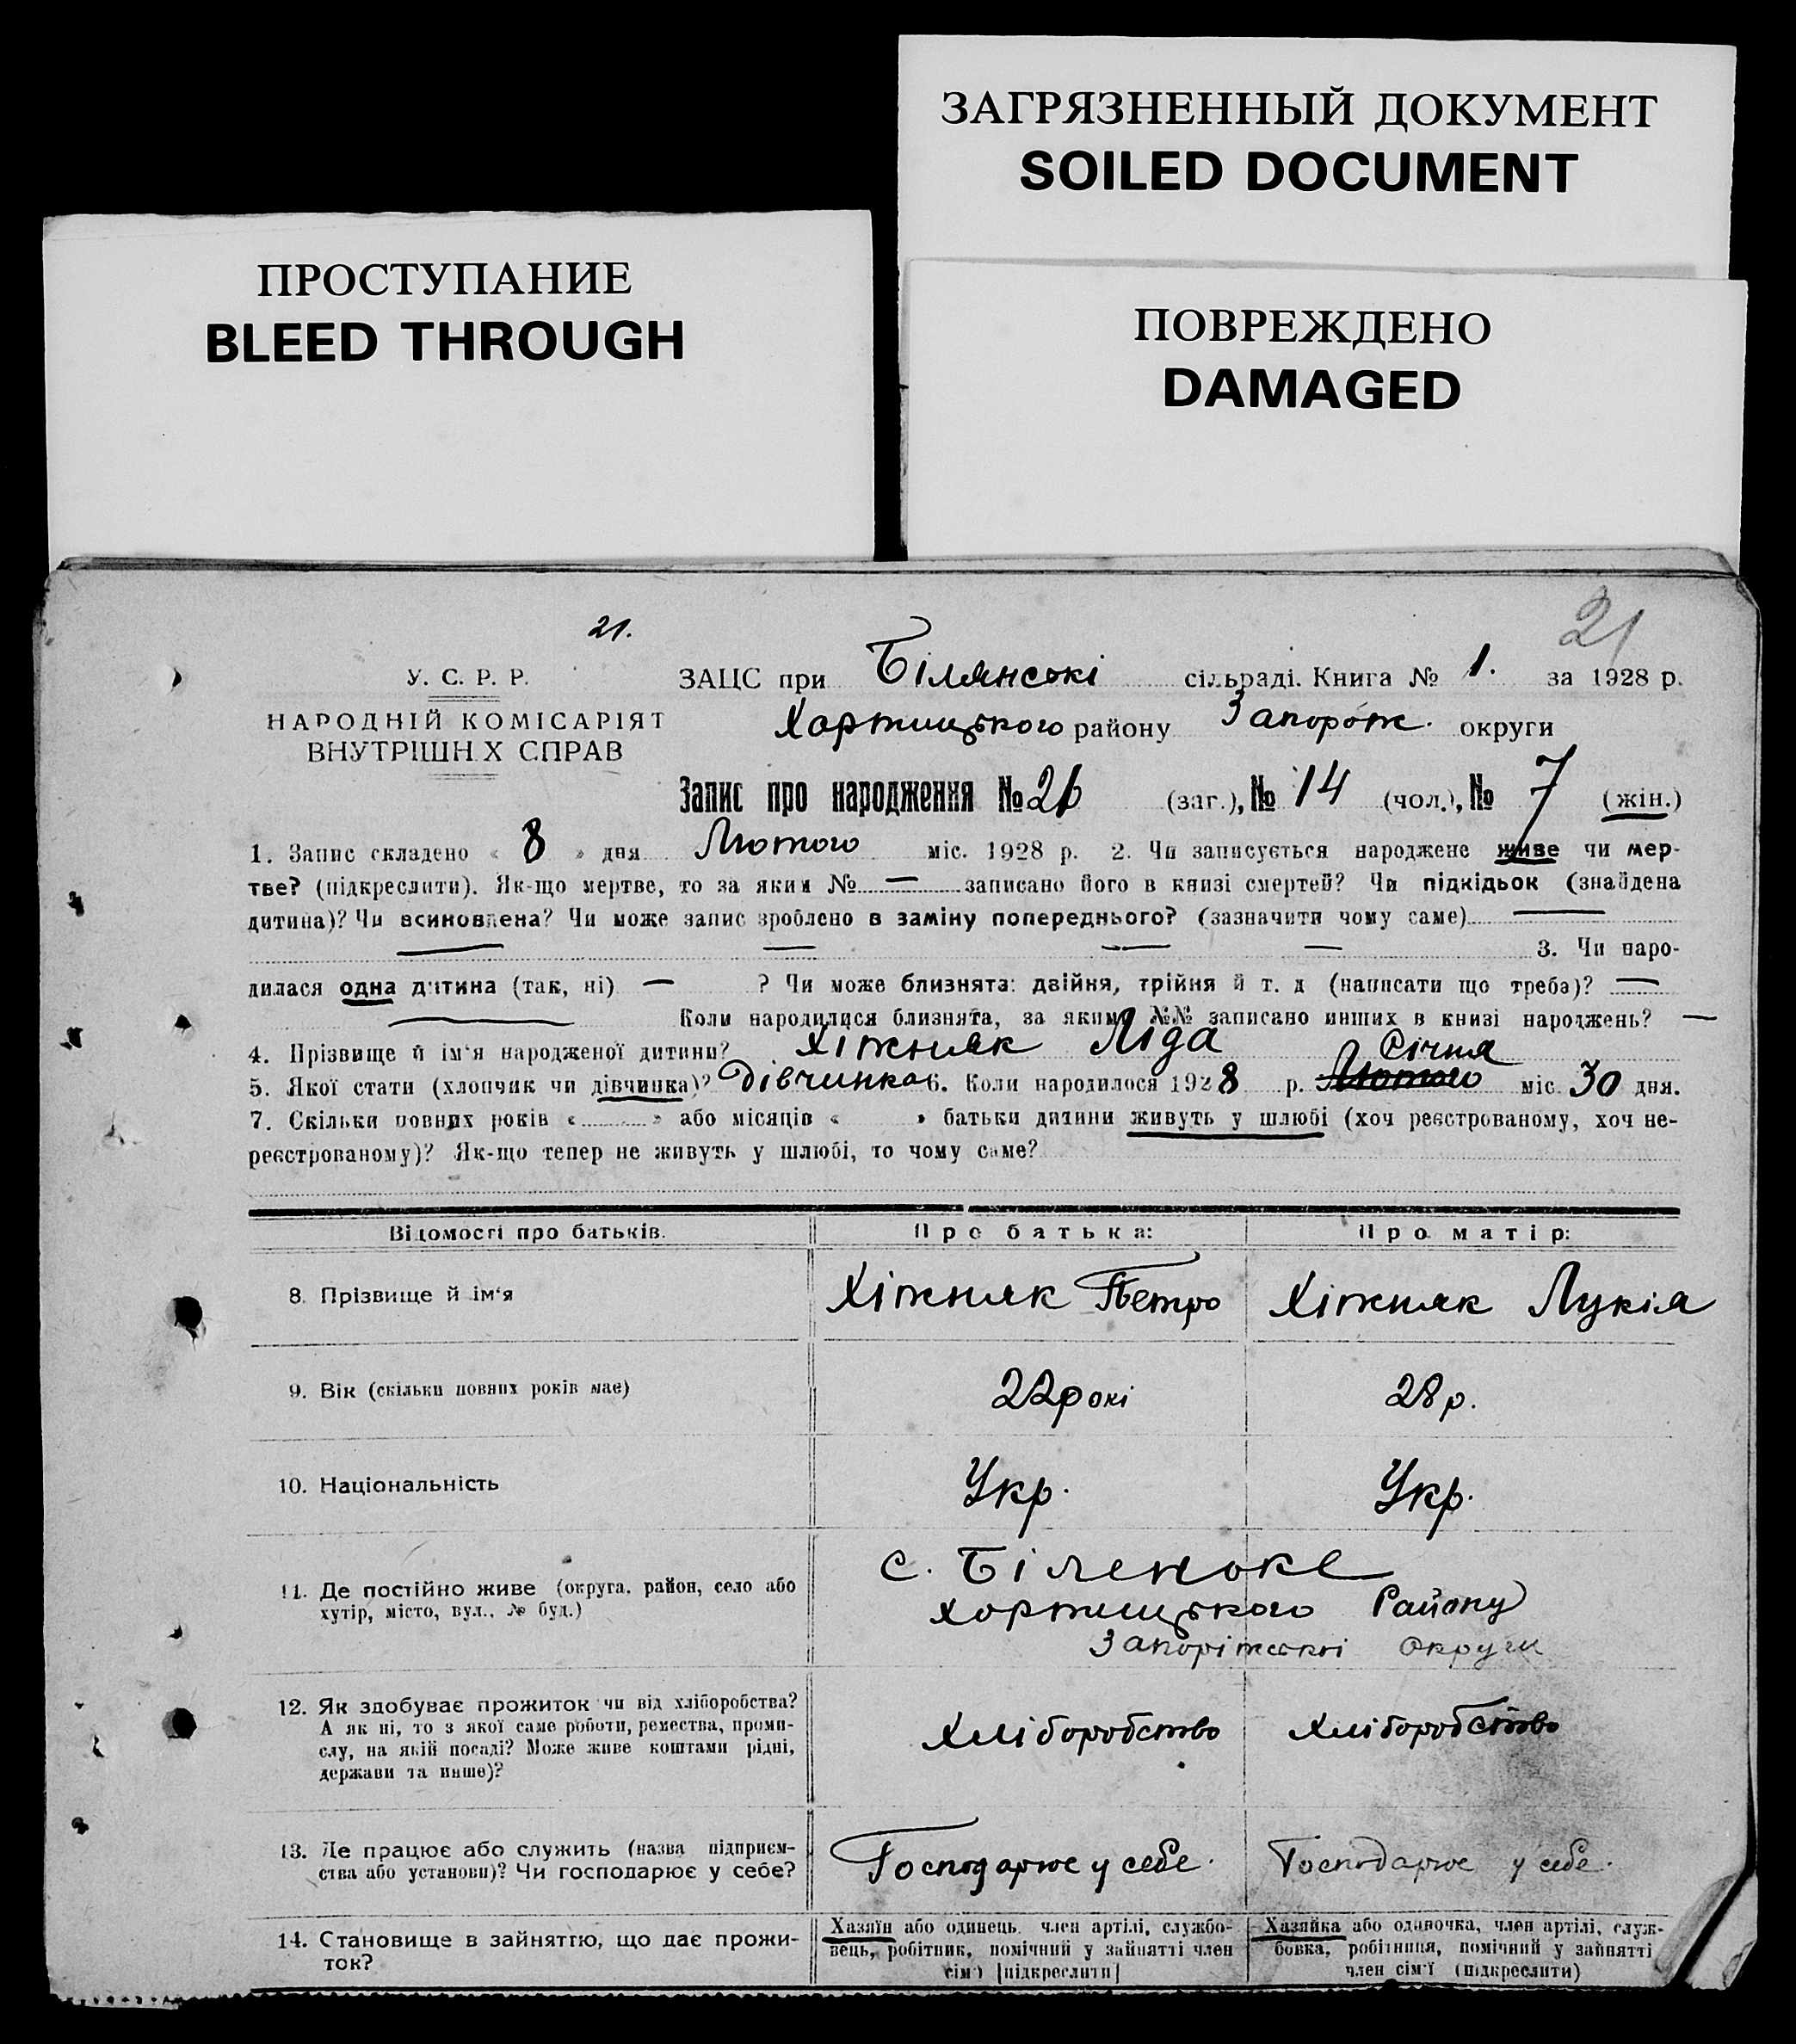 ЗАГРЯЗНЕННЫЙ ДОКУМЕНТ
SOILED DOCUMENT
ПРОСТУПАНИЕ
BLEED THROUGH
ПОВРЕЖДЕНО
DAMAGED
21.
21
У. С. Р. Р.
НАРОДНІЙ КОМІСАРІЯТ
ВНУТРІШН Х СПРАВ
ЗАЦС при Білянські сільраді. Книга № 1. за 1928 р.
Хортицького району Запорож. округи
Запис про народження № 21 (заг.), № 14 (чол.), № 7 (жін.)
1. Запис складено « 8 » дня Лютого міс. 1928 р. 2. Чи записується народжене живе чи мер-
тве? (підкреслити). Як-що мертве, то за яким № — записано його в книзі смертей? Чи підкідьок (знайдена
дитина)? Чи всиновлена? Чи може запис зроблено в заміну попереднього? (зазначити чому саме) —
— — — — 3. Чи наро-
дилася одна дитина (так, ні) — ? Чи може близнята: двійня, трійня й т. д (написати що треба)? —
— Коли народилися близнята, за якими №№ записано инших в книзі народжень? —
4. Прізвище й ім'я народженої дитини? Хіжняк Ліда Січня
5. Якої стати (хлопчик чи дівчинка)? Дівчинка 6. Коли народилося 1928 р. Лютого міс. 30 дня.
7. Скільки повних років « » або місяців « » батьки дитини живуть у шлюбі (хоч реєстрованому, хоч не-
реєстрованому)? Як-що тепер не живуть у шлюбі, то чому саме?
Відомості про батьків. Про батька: Про матір:
8. Прізвище й ім'я Хіжняк Петро Хіжняк Лукія
9. Вік (скільки повних років має) 22 рокі 28 р.
10. Національність Укр. Укр.
с. Біленьке
11. Де постійно живе (округа, район, село або
хутір, місто, вул., № буд.) Хортицького Району
Запоріжські Округи
12. Як здобуває прожиток чи від хліборобства?
А як ні, то з якої саме роботи, ремества, проми-
слу, на якій посаді? Може живе коштами рідні,
держави та инше)?
Хліборобство Хліборобство
13. Де працює або служить (назва підприєм-
ства або установи)? Чи господарює у себе?
Господарює у себе. Господарює у себе.
14. Становище в зайняттю, що дає прожи-
ток?
Хазяїн або одинець, член артілі, службо-
вець, робітник, помічний у зайнятті член
сім'ї [підкреслити]
Хазяйка або одиночка, член артілі, служ-
бовка, робітниця, помічний у зайнятті
член сім'ї (підкреслити)